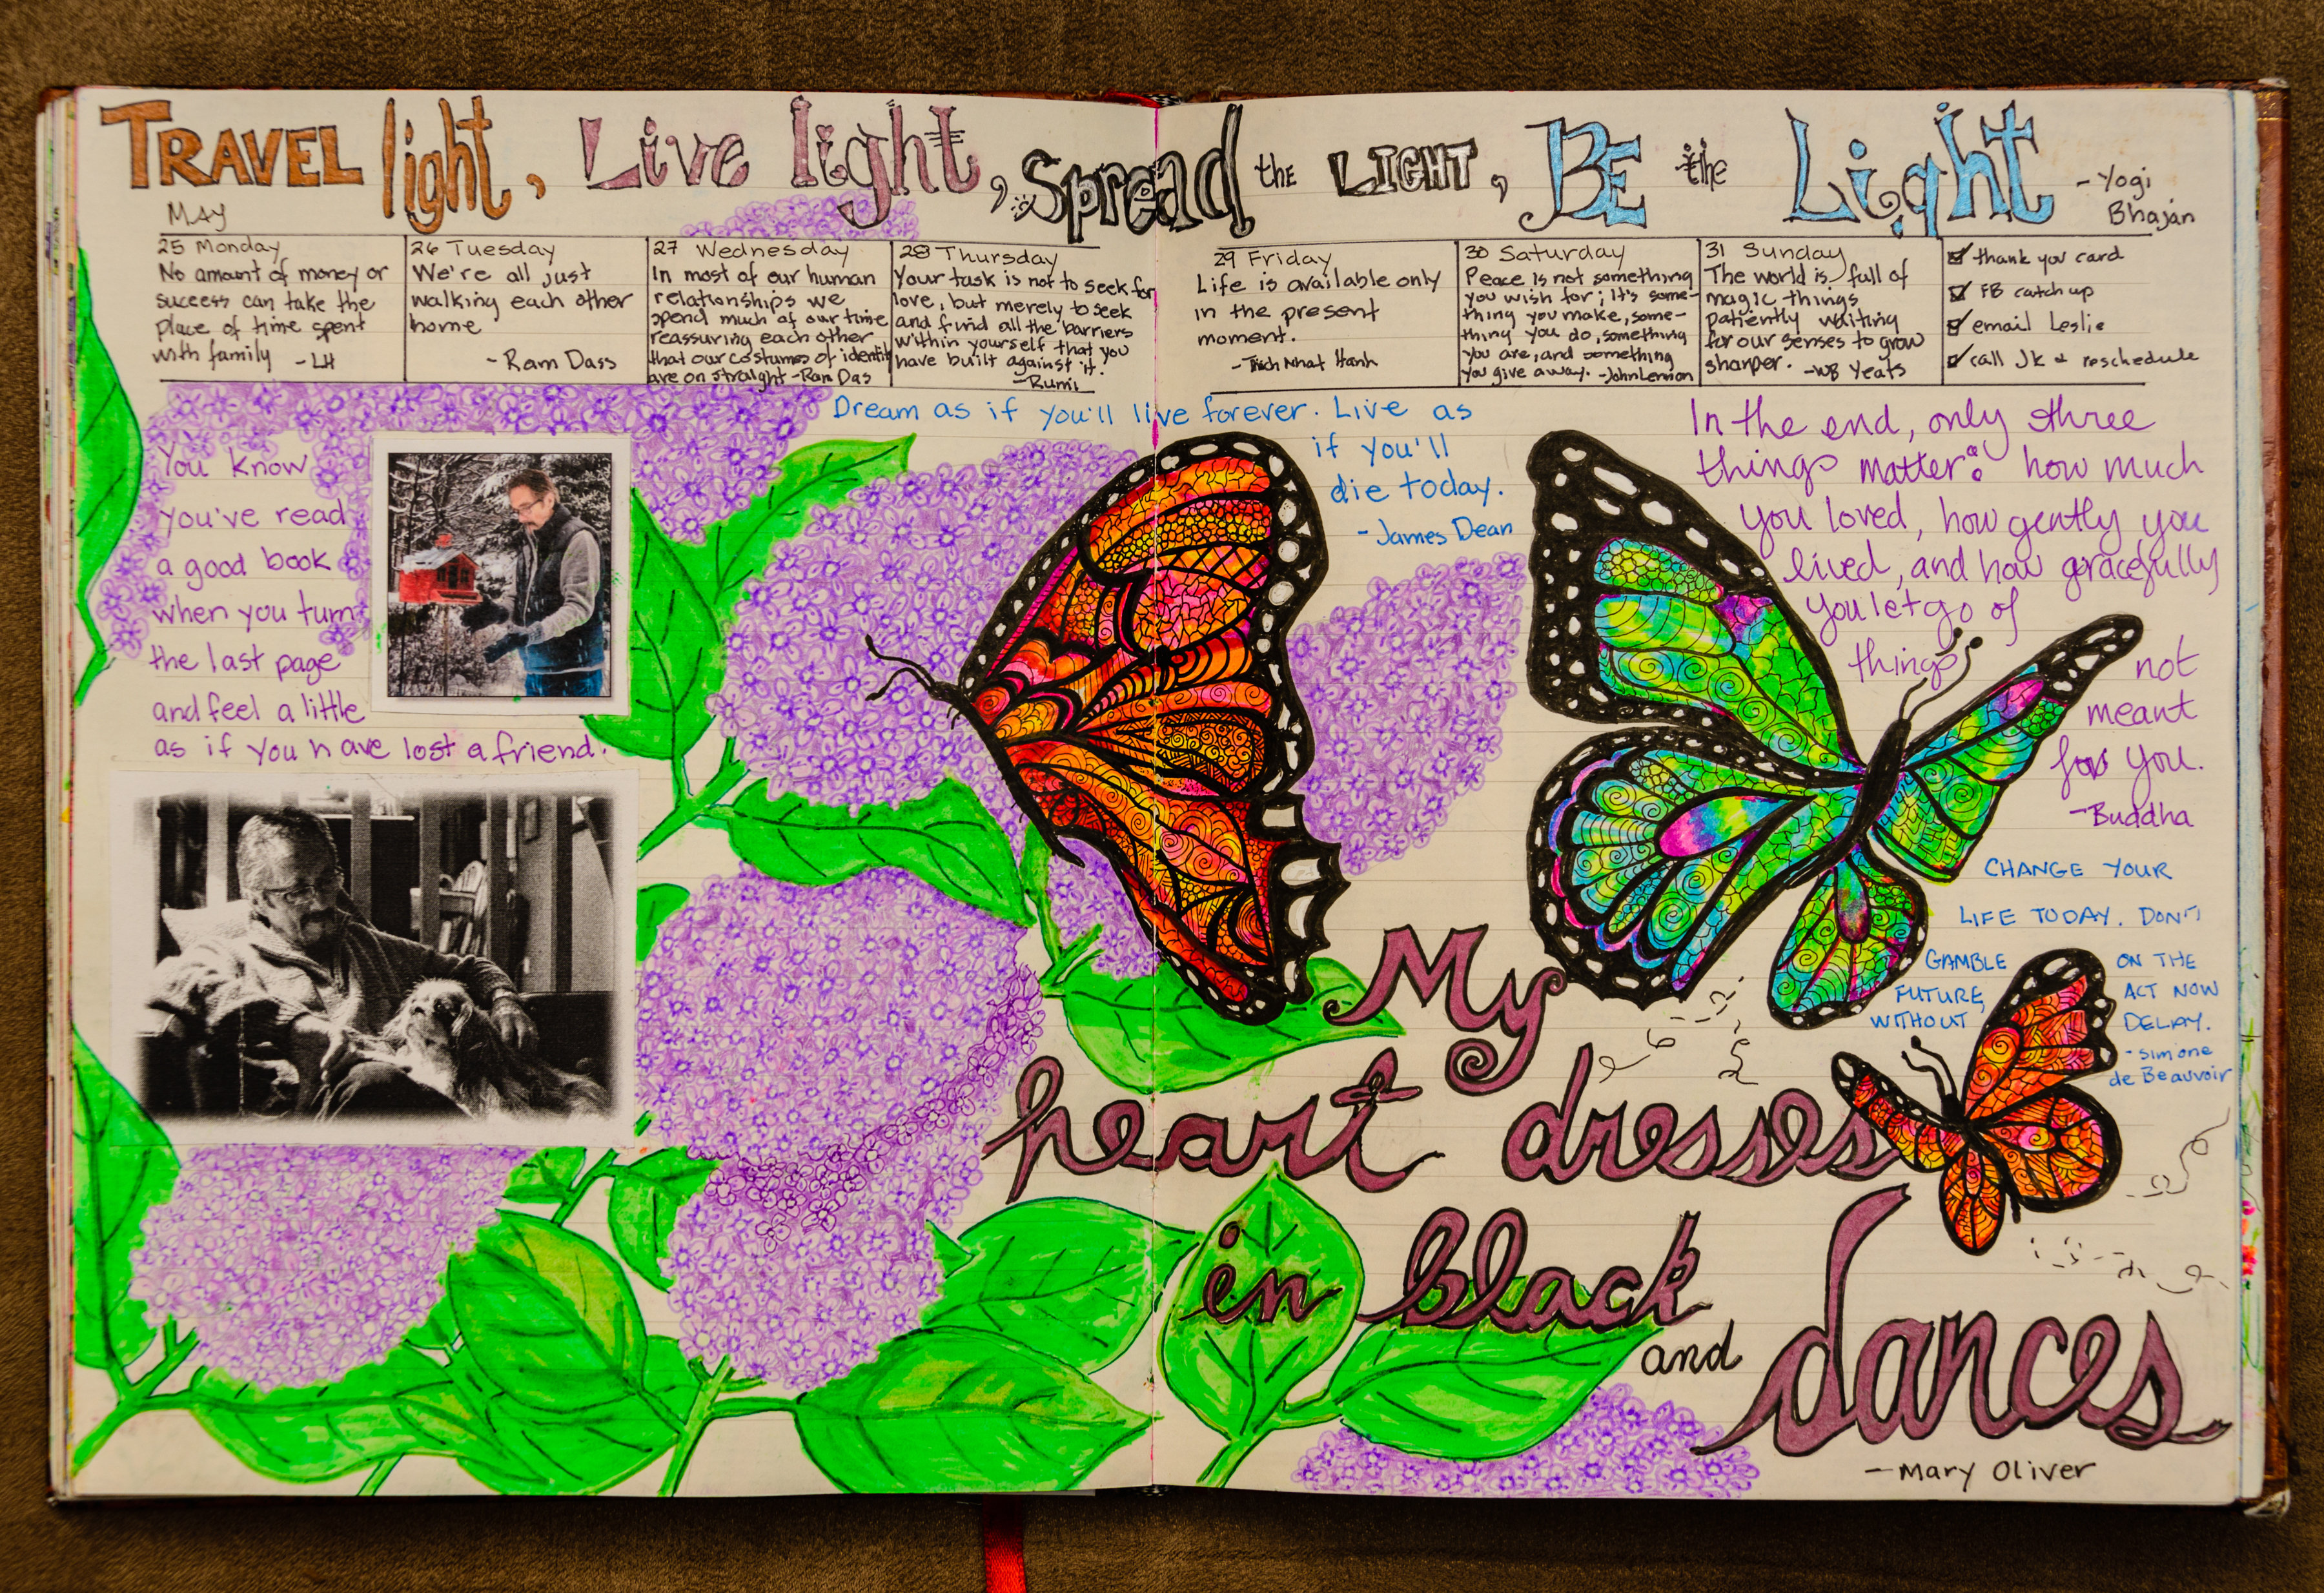 TRAVEL light, Live light, Spread the LIGHT, BE the Light - Yogi
Bhajan
MAY
25 Monday
No amount of money or
success can take the
place of time spent
with family - LH
26 Tuesday
We're all just
walking each other
home
- Ram Dass
27 Wednesday
In most of our human
relationships we
spend much of our time
reassuring each other
that our costumes of identity
are on straight - Ram Das
28 Thursday
Your task is not to seek for
love, but merely to seek
and find all the barriers
within yourself that you
have built against it.
- Rumi
29 Friday
Life is available only
in the present
moment.
- Thich Nhat Hanh
30 Saturday
Peace is not something
you wish for; it's some-
thing you make, some-
thing you do, something
you are, and something
you give away. - John Lennon
31 Sunday
The world is full of
magic things
patiently waiting
for our senses to grow
sharper. - WB Yeats
thank you card
FB catch up
email Leslie
call JK & reschedule
You know
you've read
a good book
when you turn
the last page
and feel a little
as if you have lost a friend.
Dream as if you'll live forever. Live as
if you'll
die today.
- James Dean
In the end, only three
things matter: how much
you loved, how gently you
lived, and how gracefully
you let go of
things not
meant
for you.
- Buddha
CHANGE YOUR
LIFE TODAY. DON'T
GAMBLE ON THE
FUTURE, ACT NOW
WITHOUT DELAY.
- Simone
de Beauvoir
My
heart dresses
in black
and dances
- Mary Oliver